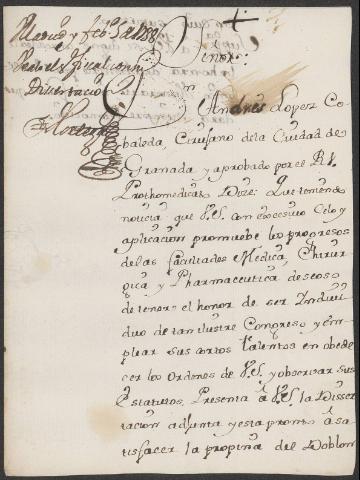 Madrid y feb.º 5 de 1788
Señor.
Disertacion
Dn Andres Lopez Co-
baleda, Cirujano de la Ciudad de
Granada y aprobado por el Rl.
Prothomedicato Dize: Que teniendo
noticia que V.S. con excesivo Celo y
aplicacion promuebe los progresos
de las facultades Medica, Chirur
gica y Pharmaceutica deseoso
de tener el honor de ser Indivi
duo de tan Ilustre Congreso y em
plear sus cortos talentos en obede
cer los Ordenes de V.S. y observar sus
Estatutos, Presenta á V.S. la Diser
tacion adjunta y esta pronto á sa
tisfacer la propina del Doblon